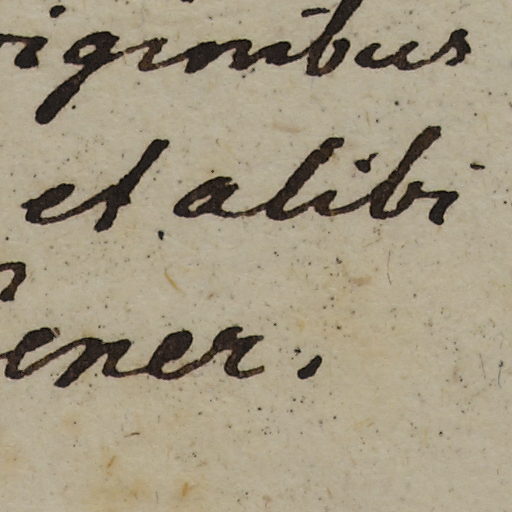 riginibus
et alibi
ener.